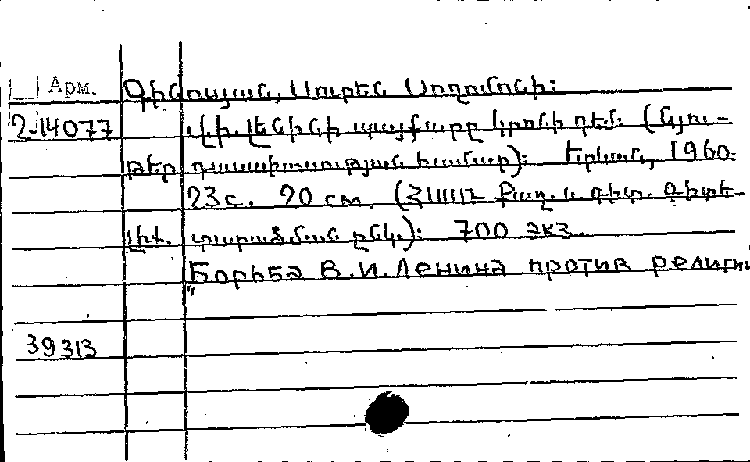 Арм. Գինոսյան, Սուրեն Սողոմոնի:
2-14077 Վ. Ի. Լենինի պայքարը կրոնի դեմ: (Նյու-
թեր դասախոսության համար): Երևան, 1960.
23с. 20 см. (ՀՍՍՌ Քաղ. և գիտ. գիտե-
լիք. տարածման ընկ.): 700 экз.
"Борьба В.И.Ленина против религии
39313